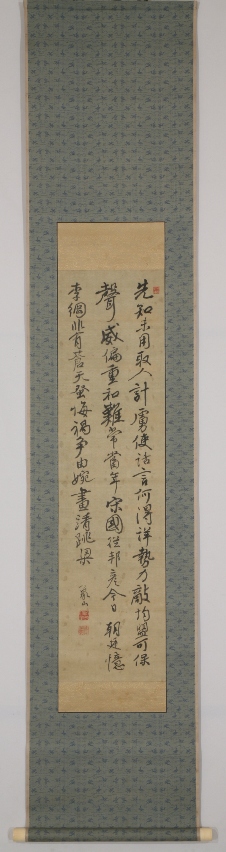 先知未用取人計虜使話言何得詳勢力敵均盟可保
聲威偏重和難常當年宋國從邦彥今日朝廷憶
李綱非有蒼天登悔禍爭由婉畫清跳梁